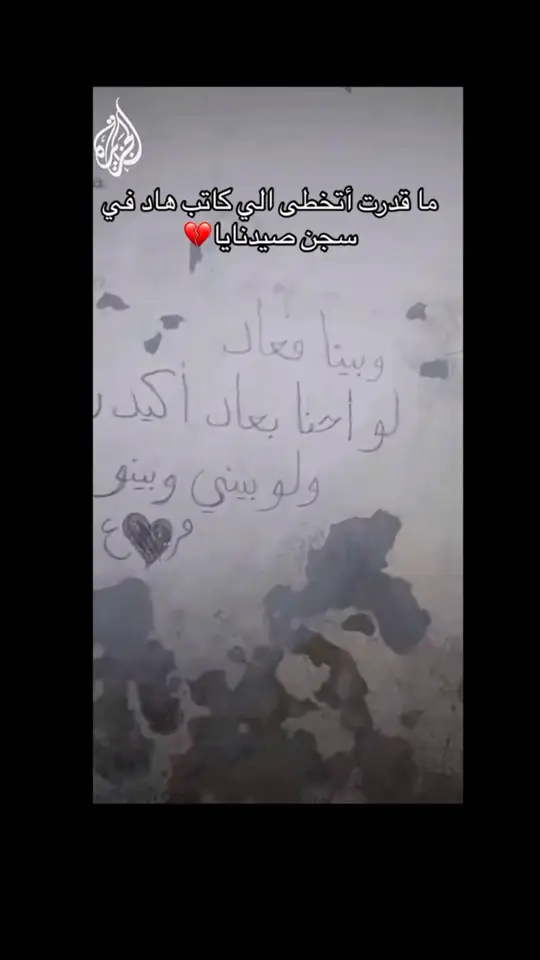 الجزيرة
ما قدرت أتخطى الي كاتب هاد في
سجن صيدنايا💔
وبينا معاد
لو احنا بعاد أكيد ر
ولو بيني وبينو